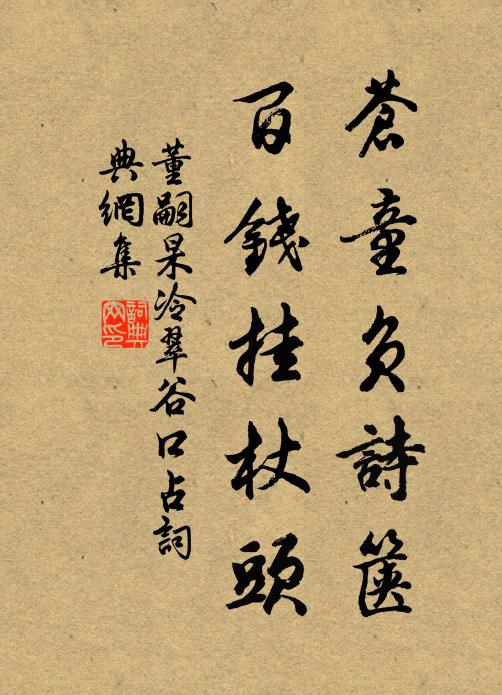 蒼童負詩篋
百錢挂杖頭
董嗣杲冷翠谷口占詞
典網集
詞典網印